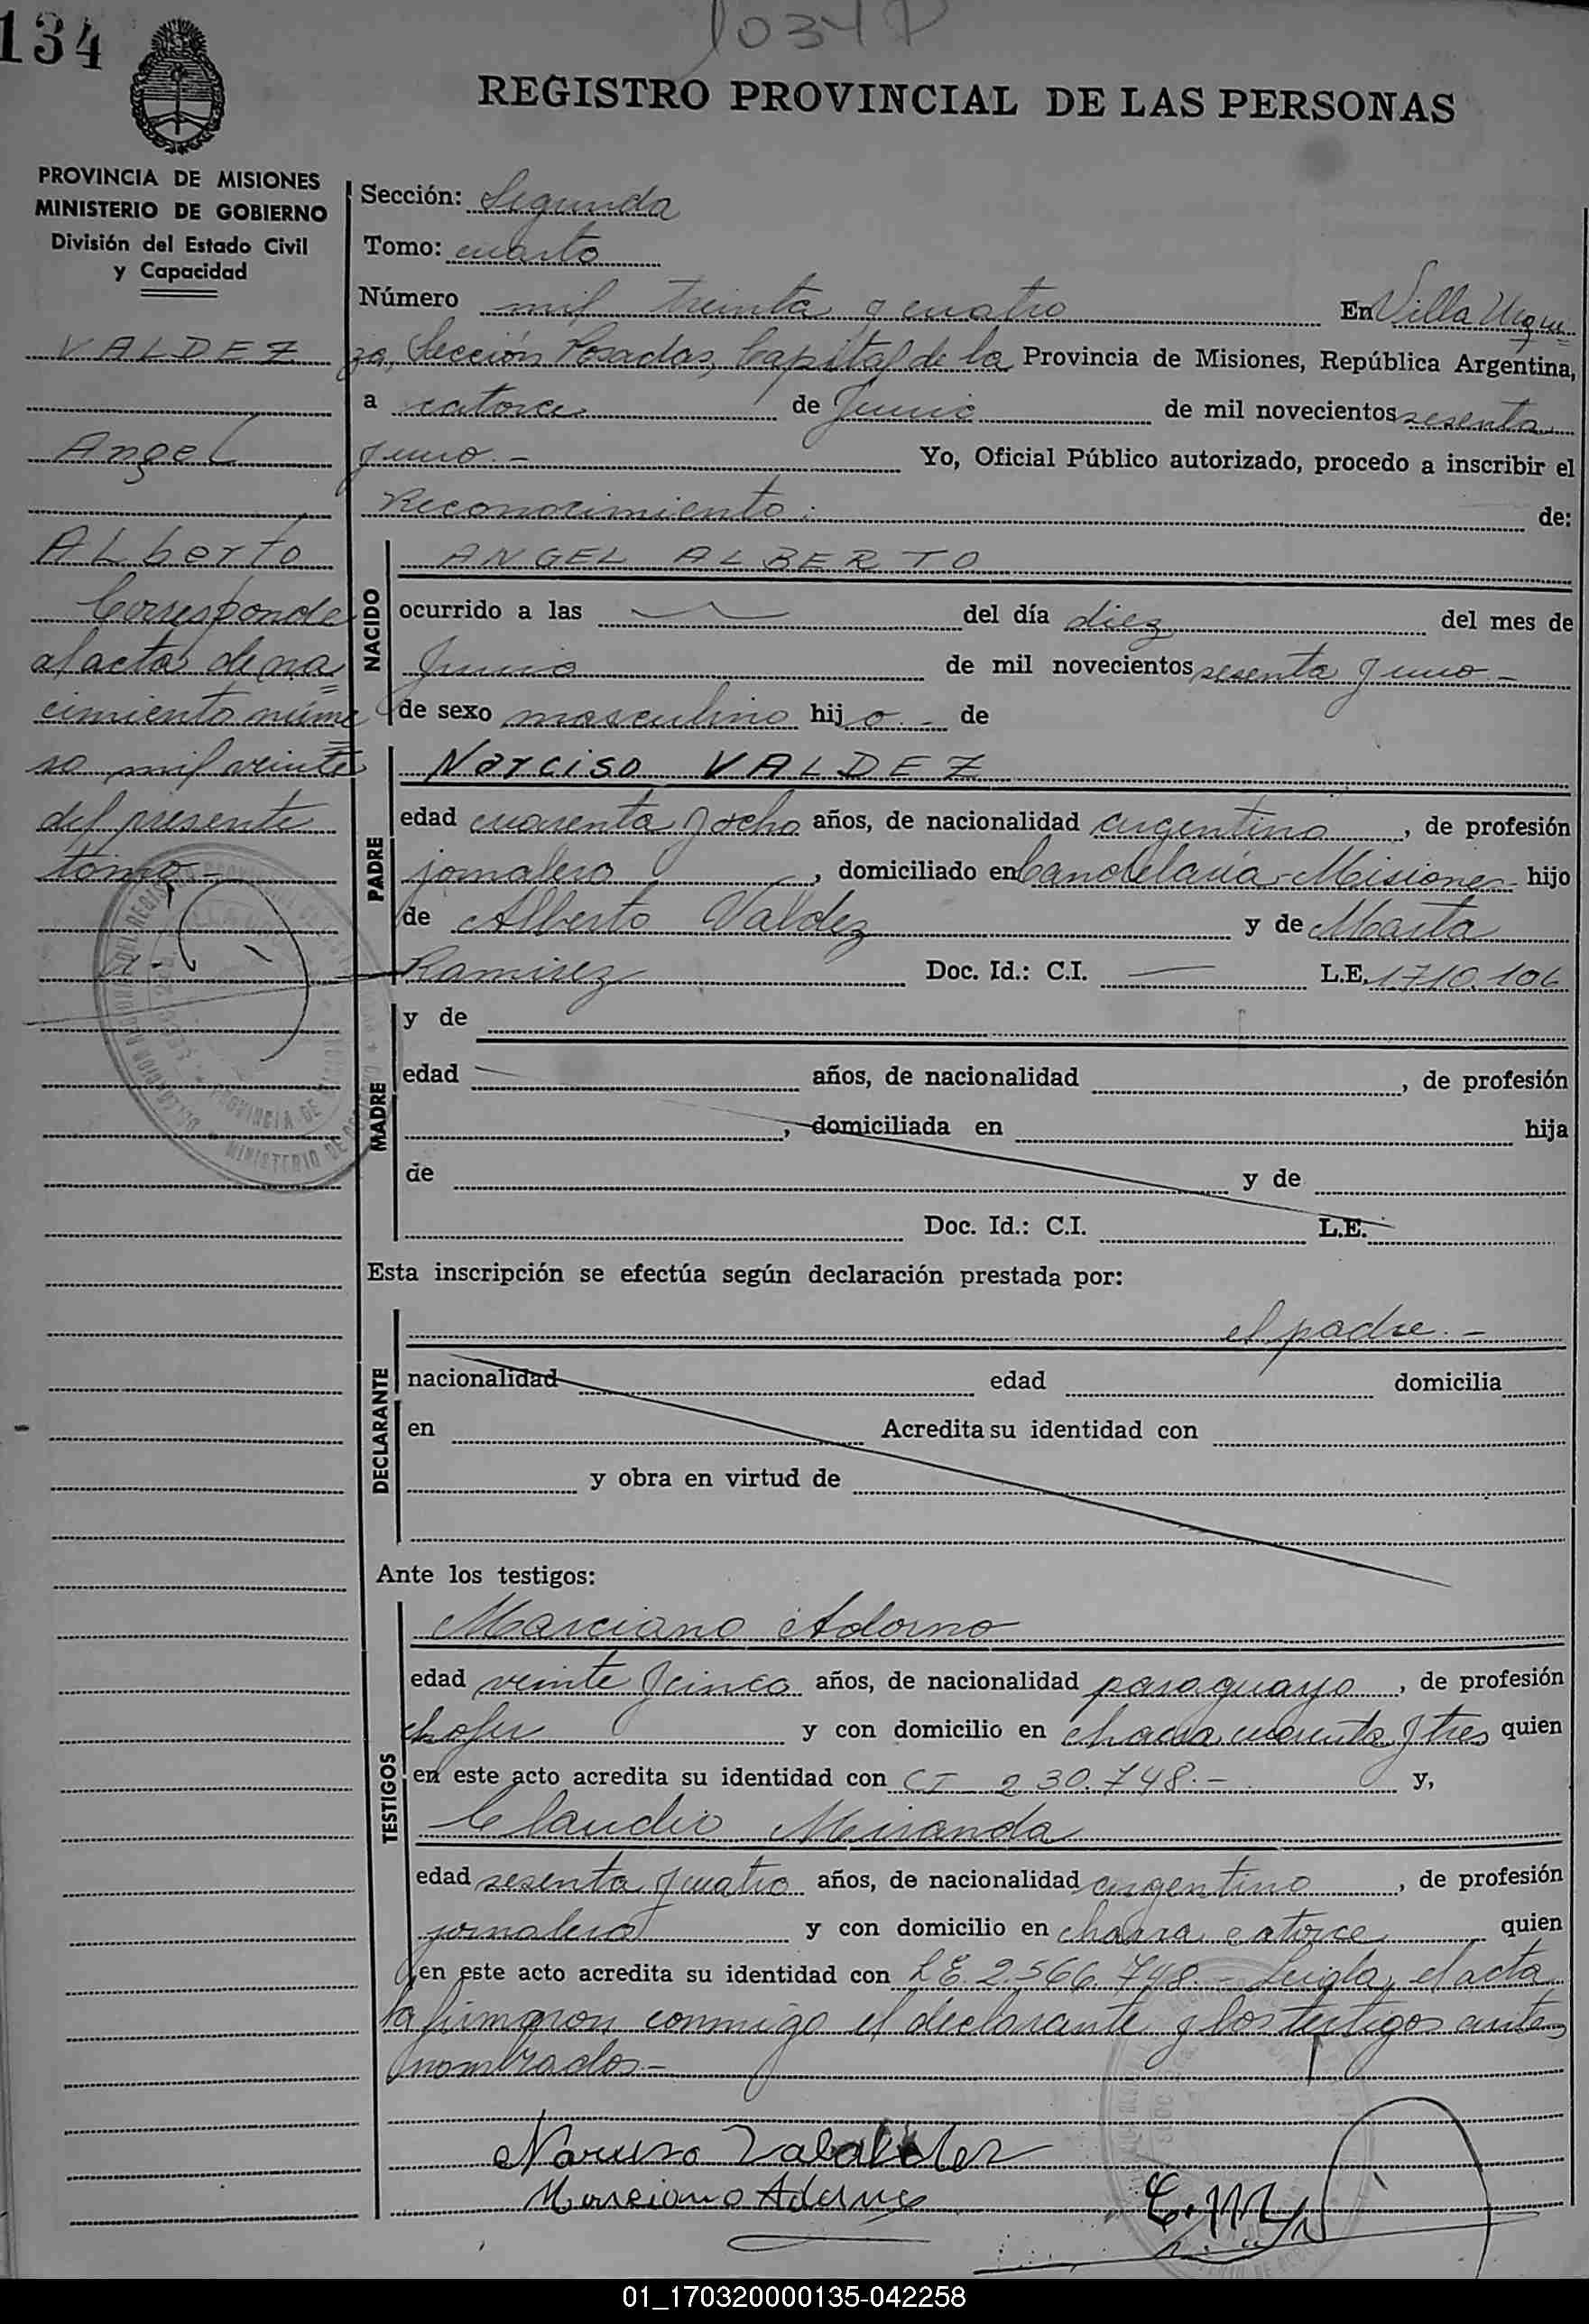 134
1034
REGISTRO PROVINCIAL DE LAS PERSONAS
PROVINCIA DE MISIONES
MINISTERIO DE GOBIERNO
División del Estado Civil
y Capacidad
VALDEZ
Angel
Alberto
Corresponde
al acta de na=
cimiento núme
ro mil veinte
del presente
tomo.-
Sección: Segunda
Tomo: cuarto
Número mil treinta y cuatro En Villa Urqui=
za, Sección Posadas, Capital de la Provincia de Misiones, República Argentina,
a catorce de Junio de mil novecientos sesenta
y uno.- Yo, Oficial Público autorizado, procedo a inscribir el
Reconocimiento: de:
NACIDO
ANGEL ALBERTO
ocurrido a las del día diez del mes de
Junio de mil novecientos sesenta y uno.-
de sexo masculino hijo.- de
PADRE
Narciso VALDEZ
edad cuarenta y ocho años, de nacionalidad argentino, de profesión
jornalero, domiciliado en Candelaria-Misiones- hijo
de Alberto Valdez y de Marta
Ramirez Doc. Id.: C.I. — L.E. 1.710.106
MADRE
y de
edad años, de nacionalidad , de profesión
, domiciliada en hija
de y de
Doc. Id.: C.I. L.E.
Esta inscripción se efectúa según declaración prestada por:
DECLARANTE
el padre.-
nacionalidad edad domicilia
en Acredita su identidad con
y obra en virtud de
Ante los testigos:
TESTIGOS
Marciano Adorno
edad veinte y cinco años, de nacionalidad paraguayo, de profesión
chofer y con domicilio en chacra cuarenta y tres quien
en este acto acredita su identidad con CI 230.748.- y,
Claudio Miranda
edad sesenta y cuatro años, de nacionalidad argentino, de profesión
jornalero y con domicilio en chacra catorce quien
en este acto acredita su identidad con L.E. 2.566.748.- Leida, el acta
la firmaron conmigo el declarante y los testigos ante
nombrados.-
Marciano Adorno
01_170320000135-042258